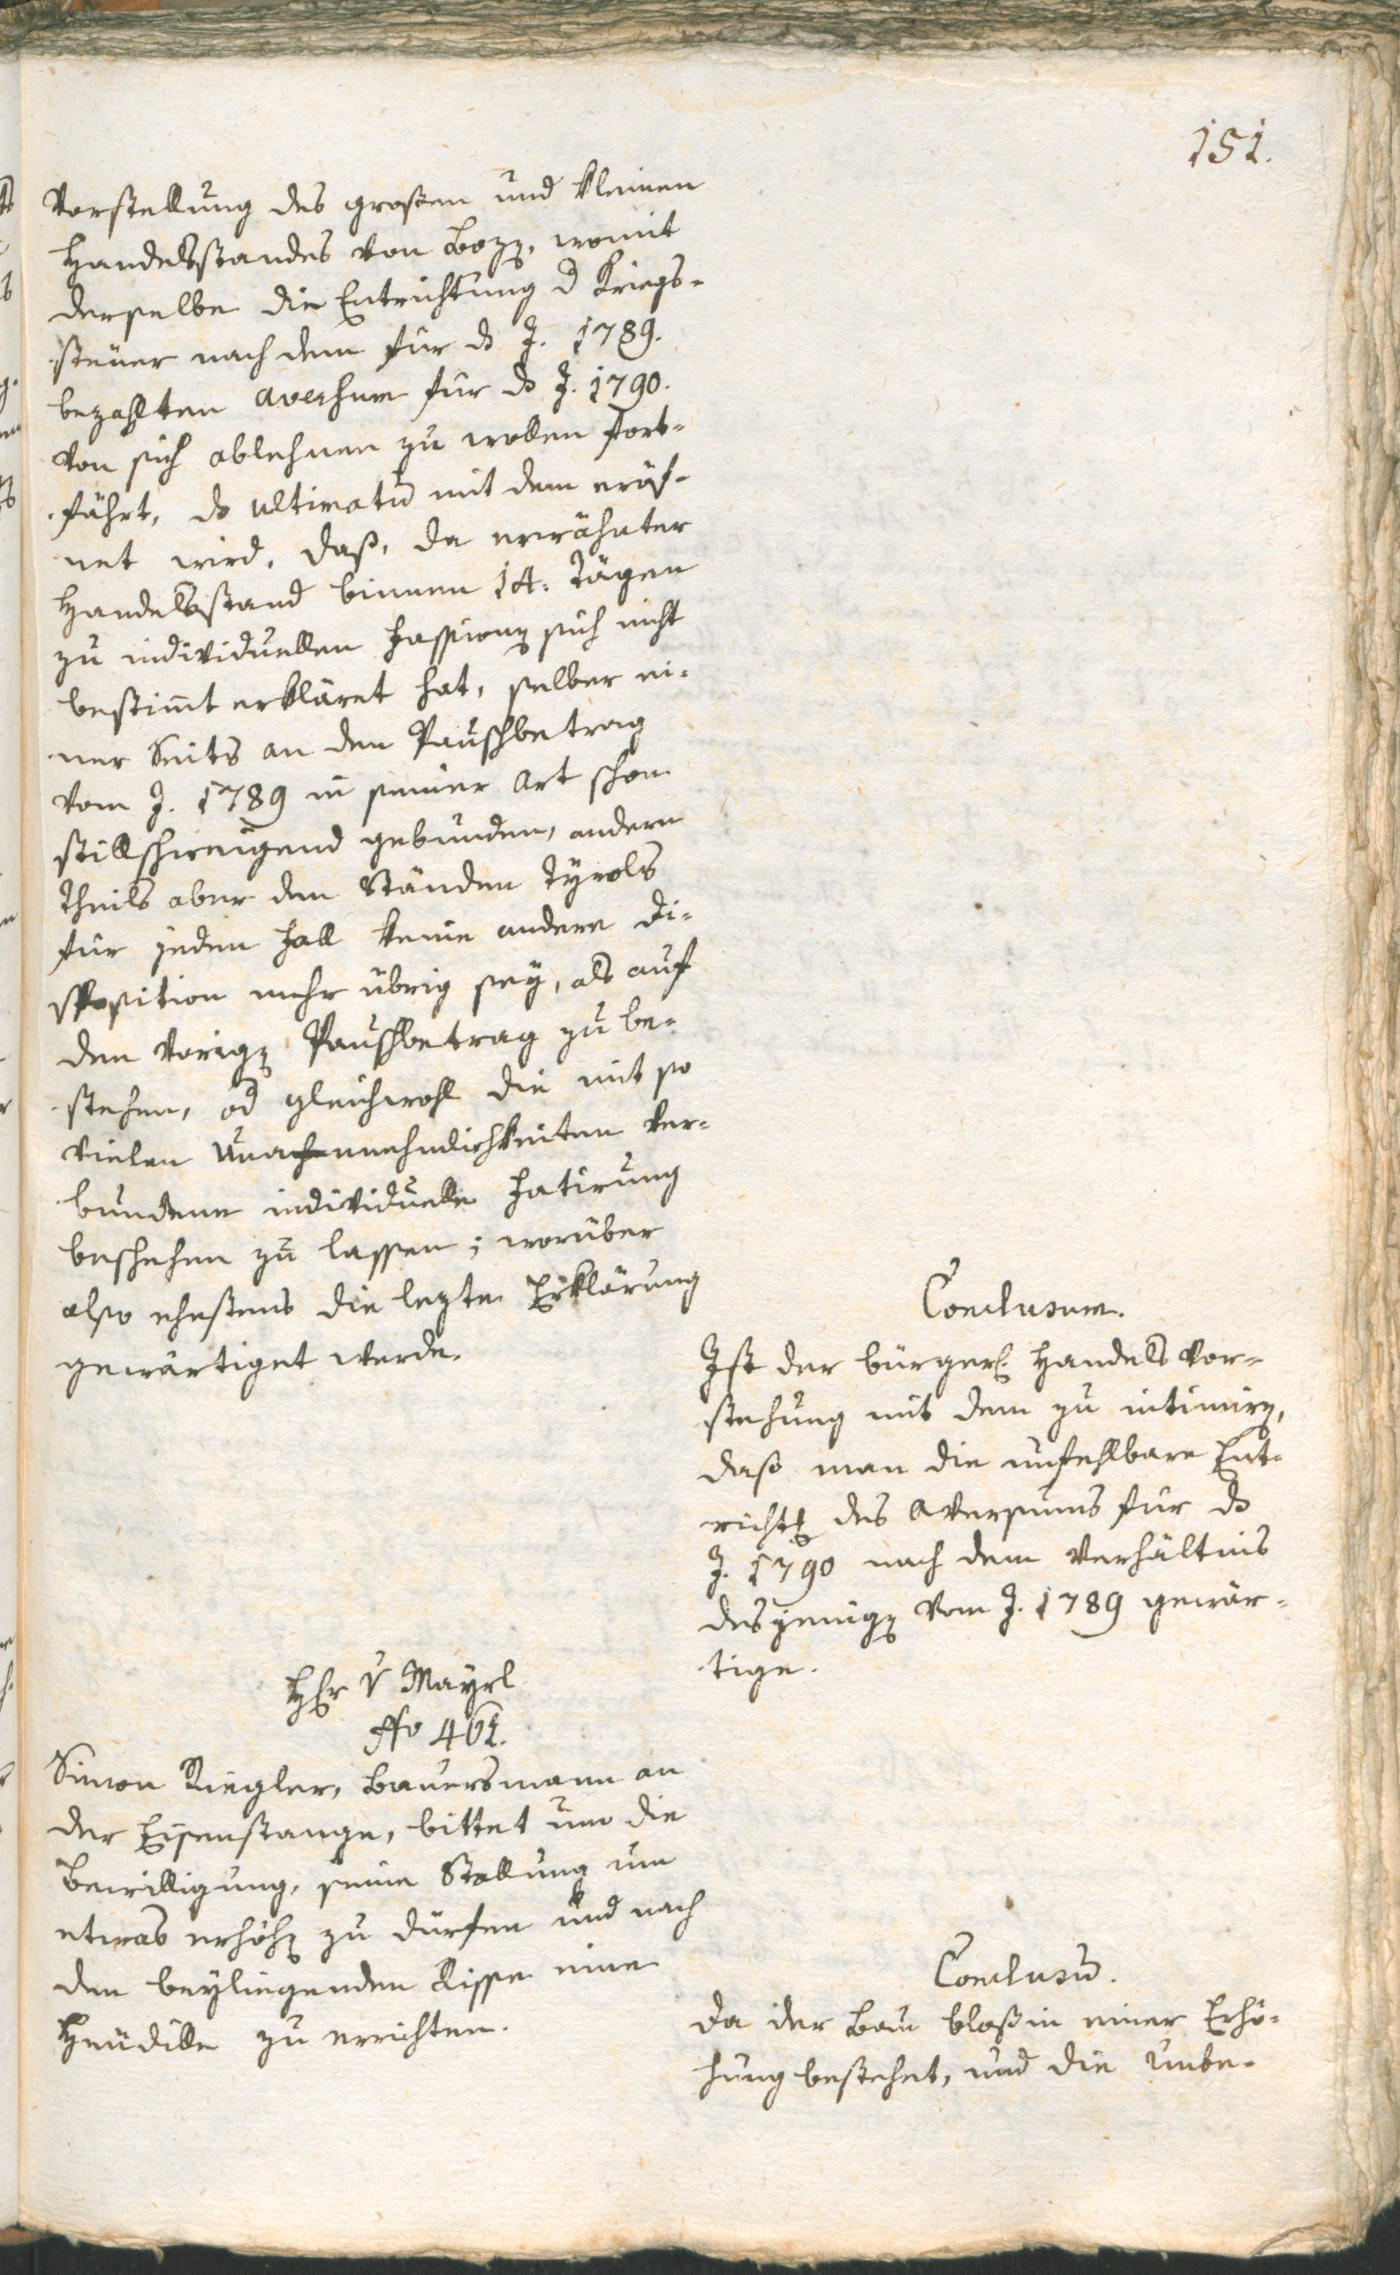 151.
Vorstellung des großen und kleinen
Handelsstandes von Boz̄, womit
derselbe die Entrichtung d Kriegs-
steuer nach dem für ds J. 1789.
bezahlten Aversum für ds J. 1790.
von sich ablehnen zu wollen fort-
fährt, ds ultimatū mit dem eröf-
net wird, daß, da erwähnter
Handelsstand binnen 14. Tägen
zu individuellen Fassionen sich nicht
bestim̄t erkläret hat, selber ei-
ner Seits an den Pauschbetrag
vom J. 1789 in seiner Art schon
stillschweigend gebunden, andern
Theils aber den Ständen Tyrols
für jeden Fall keine andere Di-
sposition mehr übrig sey, als auf
den vorigen Pauschbetrag zu be-
stehen, od gleichwohl die mit so
vielen Unannehmlichkeiten ver-
bundene individuelle Fatirung
beschehen zu lassen; worüber
also ehestens die lezte Erklärung
gewärtiget werde.
Conclusum.
Ist der bürgerl. Handels Vor-
stehung mit dem zu intimiren,
daß man die unfehlbare Ent-
richtg des Aversums für ds
J. 1790 nach dem Verhältnis
desjenigen vom J. 1789 gewär-
tige.
Hr v Mayrl
No 461.
Simon Riegler, Bauersmann an
der Eisenstange, bittet um die
Bewilligung, seine Stallung um
etwas erhöhen zu dürfen und nach
den beyliegenden Risse eine
Heudille zu errichten.
Conclusū.
Da der Bau bloß in einer Erhö-
hung bestehet, und die Unbe-